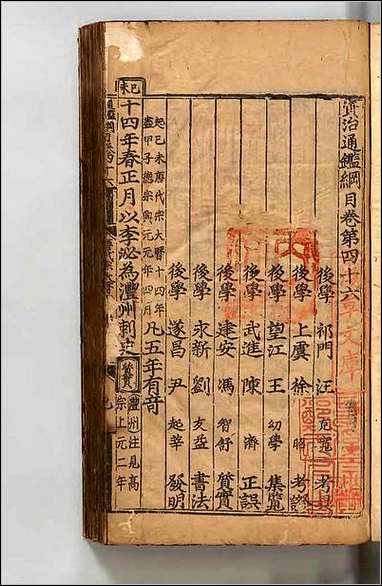 資治通鑑綱目卷第四十六
後學 祁門 汪 克寬 考異
後學 上虞 徐 昭 考證
後學 望江 王 幼學 集覽
後學 武進 陳 濟 正誤
後學 建安 馮 智舒 質實
後學 永新 劉 友益 書法
後學 遂昌 尹 起莘 發明
起己未唐代宗大曆十四年
盡甲子德宗興元元年四月
凡五年有奇
己未
十四年春正月以李泌為澧州刺史
質實
澧州注見高
宗上元二年